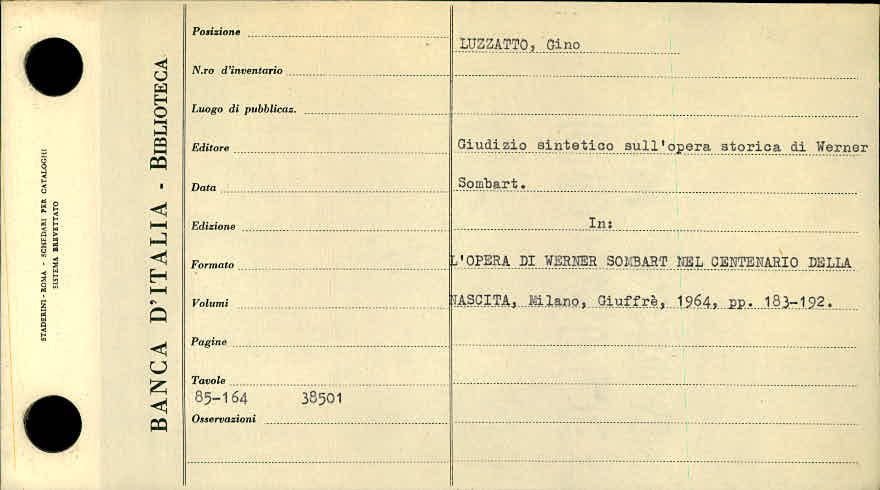 STADERINI - ROMA - SCHEDARI PER CATALOGHI
SISTEMA BREVETTATO
BANCA D'ITALIA - BIBLIOTECA
Posizione
N.ro d'inventario
Luogo di pubblicaz.
Editore
Data
Edizione
Formato
Volumi
Pagine
Tavole
85-164 38501
Osservazioni
LUZZATTO, Gino
Giudizio sintetico sull'opera storica di Werner
Sombart.
In:
L'OPERA DI WERNER SOMBART NEL CENTENARIO DELLA
NASCITA, Milano, Giuffrè, 1964, pp. 183-192.